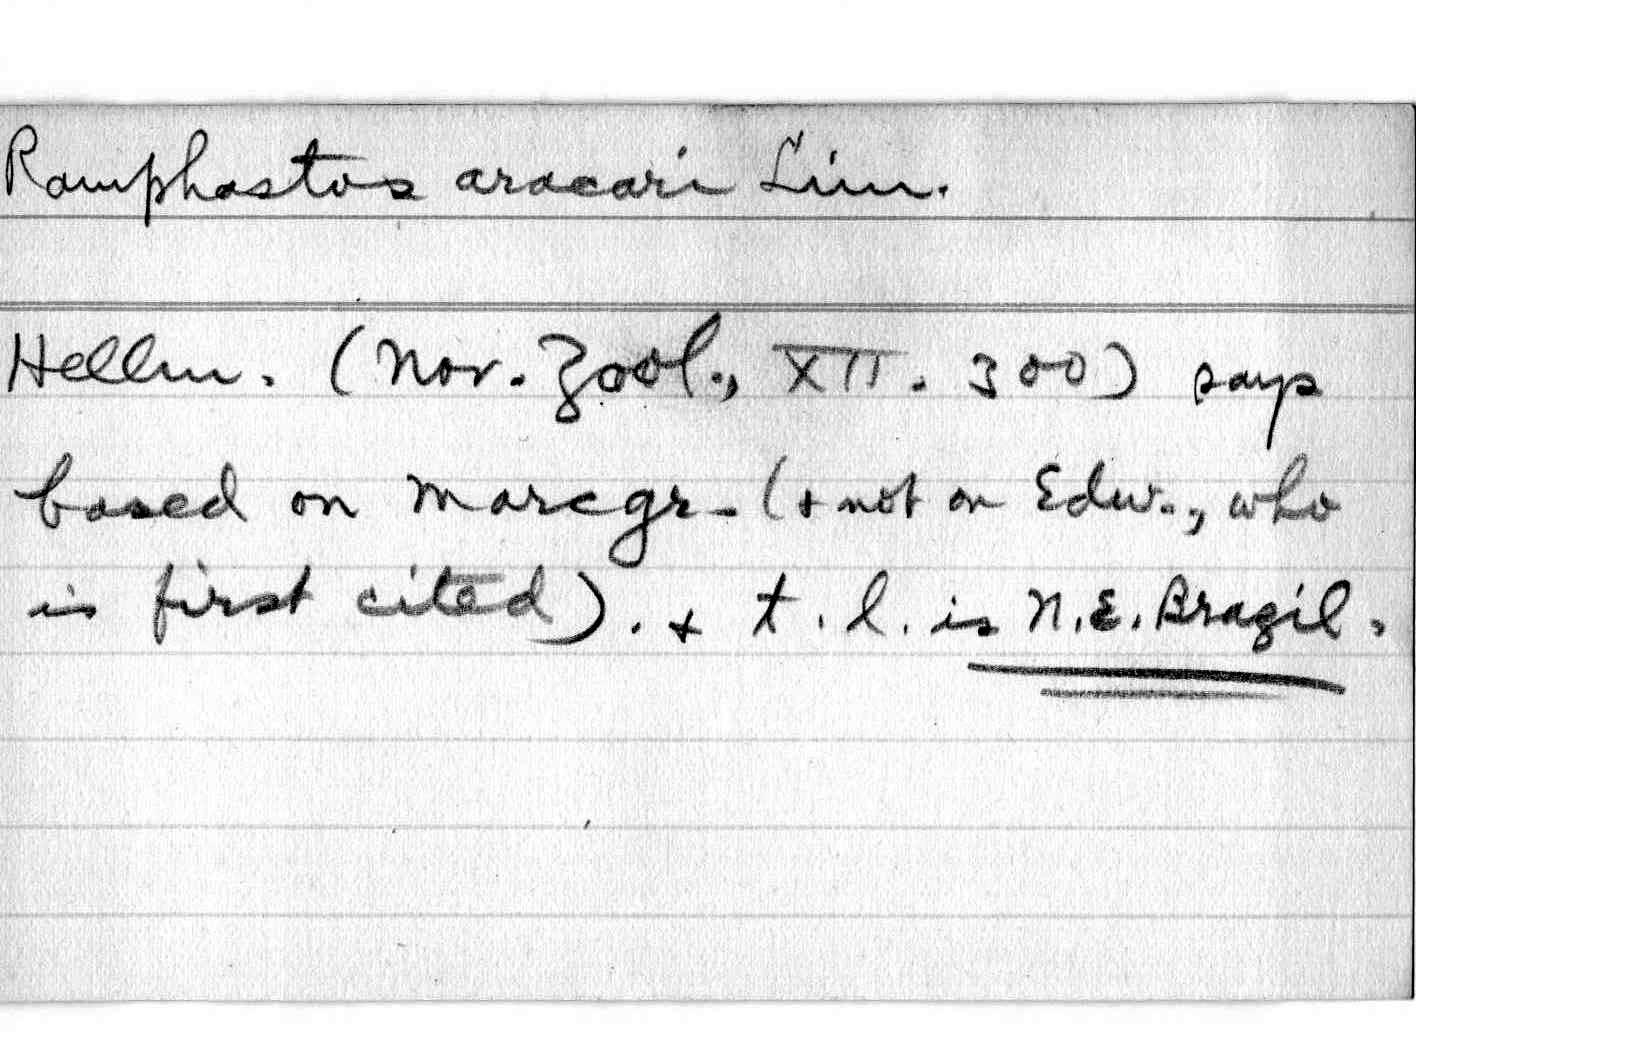 Ramphastos aracari Linn.
Hellm. (Nov. Zool., XII. 300) says
based on Marcgr. (+ not on Edw., who
is first cited). + t.l. is N.E. Brazil.